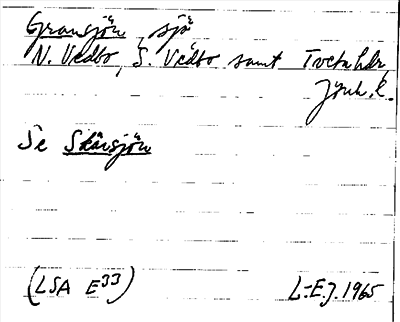 Gransjön, sjö
N. Vedbo, S. Vedbo samt Tveta hdr,
Jönk. l.
Se Skärsjön
(LSA E33) L-E.J. 1965